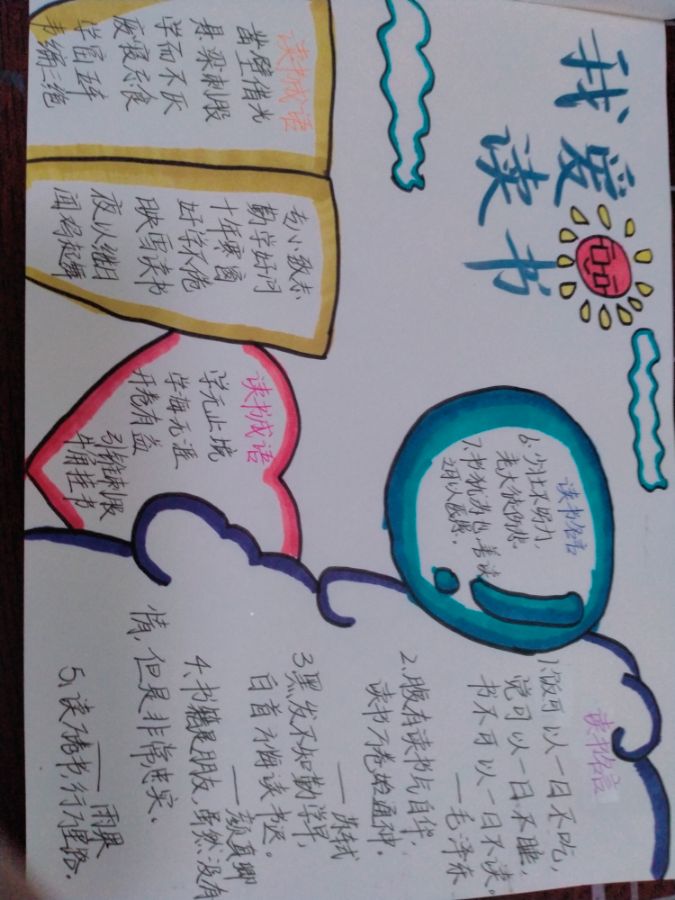 我爱读书
读书成语
凿壁借光
悬梁刺股
学而不厌
废寝忘食
学富五车
韦编三绝
专心致志
勤学好问
十年寒窗
好学不倦
映雪读书
夜以继日
闻鸡起舞
读书成语
学无止境
学海无涯
开卷有益
引锥刺股
牛角挂书
读书名言
6.少壮不努力,
老大徒伤悲.
7.书犹药也,善读
之可以医愚。
读书名言
1.饭可以一日不吃,
觉可以一日不睡,
书不可以一日不读。
——毛泽东
2.腹有读书气自华,
读书万卷始通神。
——苏轼
3.黑发不知勤学早,
白首方悔读书迟。
——颜真卿
4.书籍是朋友,虽然没有
情,但是非常忠实。
——雨果
5.读万卷书,行万里路。